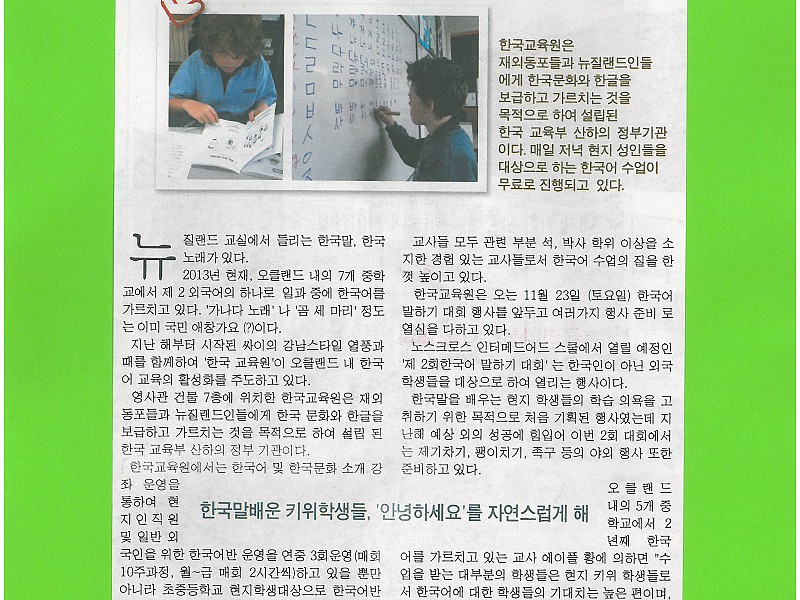 한국교육원은
재외동포들과 뉴질랜드인들
에게 한국문화와 한글을
보급하고 가르치는 것을
목적으로 하여 설립된
한국 교육부 산하의 정부기관
이다. 매일 저녁 현지 성인들을
대상으로 하는 한국어 수업이
무료로 진행되고 있다.
뉴질랜드 교실에서 들리는 한국말, 한국
노래가 있다.
2013년 현재, 오클랜드 내의 7개 중학
교에서 제 2 외국어의 하나로 일과 중에 한국어를
가르치고 있다. '가나다 노래' 나 '곰 세 마리' 정도
는 이미 국민 애창가요 (?)이다.
지난 해부터 시작된 싸이의 강남스타일 열풍과
때를 함께하여 '한국 교육원'이 오클랜드 내 한국
어 교육의 활성화를 주도하고 있다.
영사관 건물 7층에 위치한 한국교육원은 재외
동포들과 뉴질랜드인들에게 한국 문화와 한글을
보급하고 가르치는 것을 목적으로 하여 설립 된
한국 교육부 산하의 정부 기관이다.
한국교육원에서는 한국어 및 한국문화 소개 강
좌 운영을
통하여 현
지 인 직 원
및 일반 외
국인을 위한 한국어반 운영을 연중 3회운영(매회
10주과정, 월~금 매회 2시간씩)하고 있을 뿐만
아니라 초중등학교 현지학생대상으로 한국어반
한국말배운 키위학생들, '안녕하세요'를 자연스럽게 해
교사들 모두 관련 부분 석, 박사 학위 이상을 소
지한 경험 있는 교사들로서 한국어 수업의 질을 한
껏 높이고 있다.
한국교육원은 오는 11월 23일 (토요일) 한국어
말하기 대회 행사를 앞두고 여러가지 행사 준비 로
열심을 다하고 있다.
노스크로스 인터메드어드 스쿨에서 열릴 예정인
'제 2회한국어 말하기 대회' 는 한국인이 아닌 외국
학생들을 대상으로 하여 열리는 행사이다.
한국말을 배우는 현지 학생들의 학습 의욕을 고
취하기 위한 목적으로 처음 기획된 행사였는데 지
난해 예상 외의 성공에 힘입어 이번 2회 대회에서
는 제기차기, 팽이치기, 족구 등의 야외 행사 또한
준비하고 있다.
오 클 랜 드
내의 5개 중
학교에서 2
년째 한국
어를 가르치고 있는 교사 에이플 황에 의하면 "수
업을 받는 대부분의 학생들은 현지 키위 학생들로
서 한국어에 대한 학생들의 기대치는 높은 편이며,